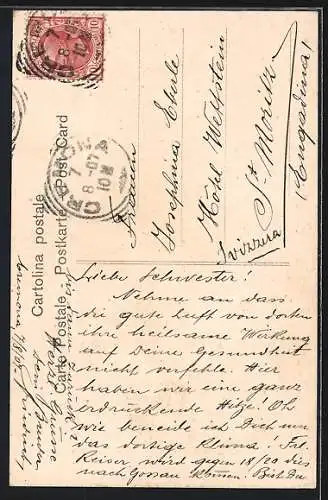 Cartolina postale
Carte Postale Postkarte Post Card
CREMONA
7
8-07
10M
Josephina Eberle
Hôtel Wettstein
St. Moritz
(Engadina)
Svizzera
Liebe Schwester!
Nehme an dass
die gute Luft von dorten
ihre heilsame Wirkung
auf Deine Gesundheit
nicht verfehle. Hier
haben wir eine ganz
erdrückende Hitze. Oh
wie beneide ich Dich um
das dortige Klima!
Reiser wird gegen 18/20 dies
nach Gossau kommen. Bist Du
Cremona, 7/8/07